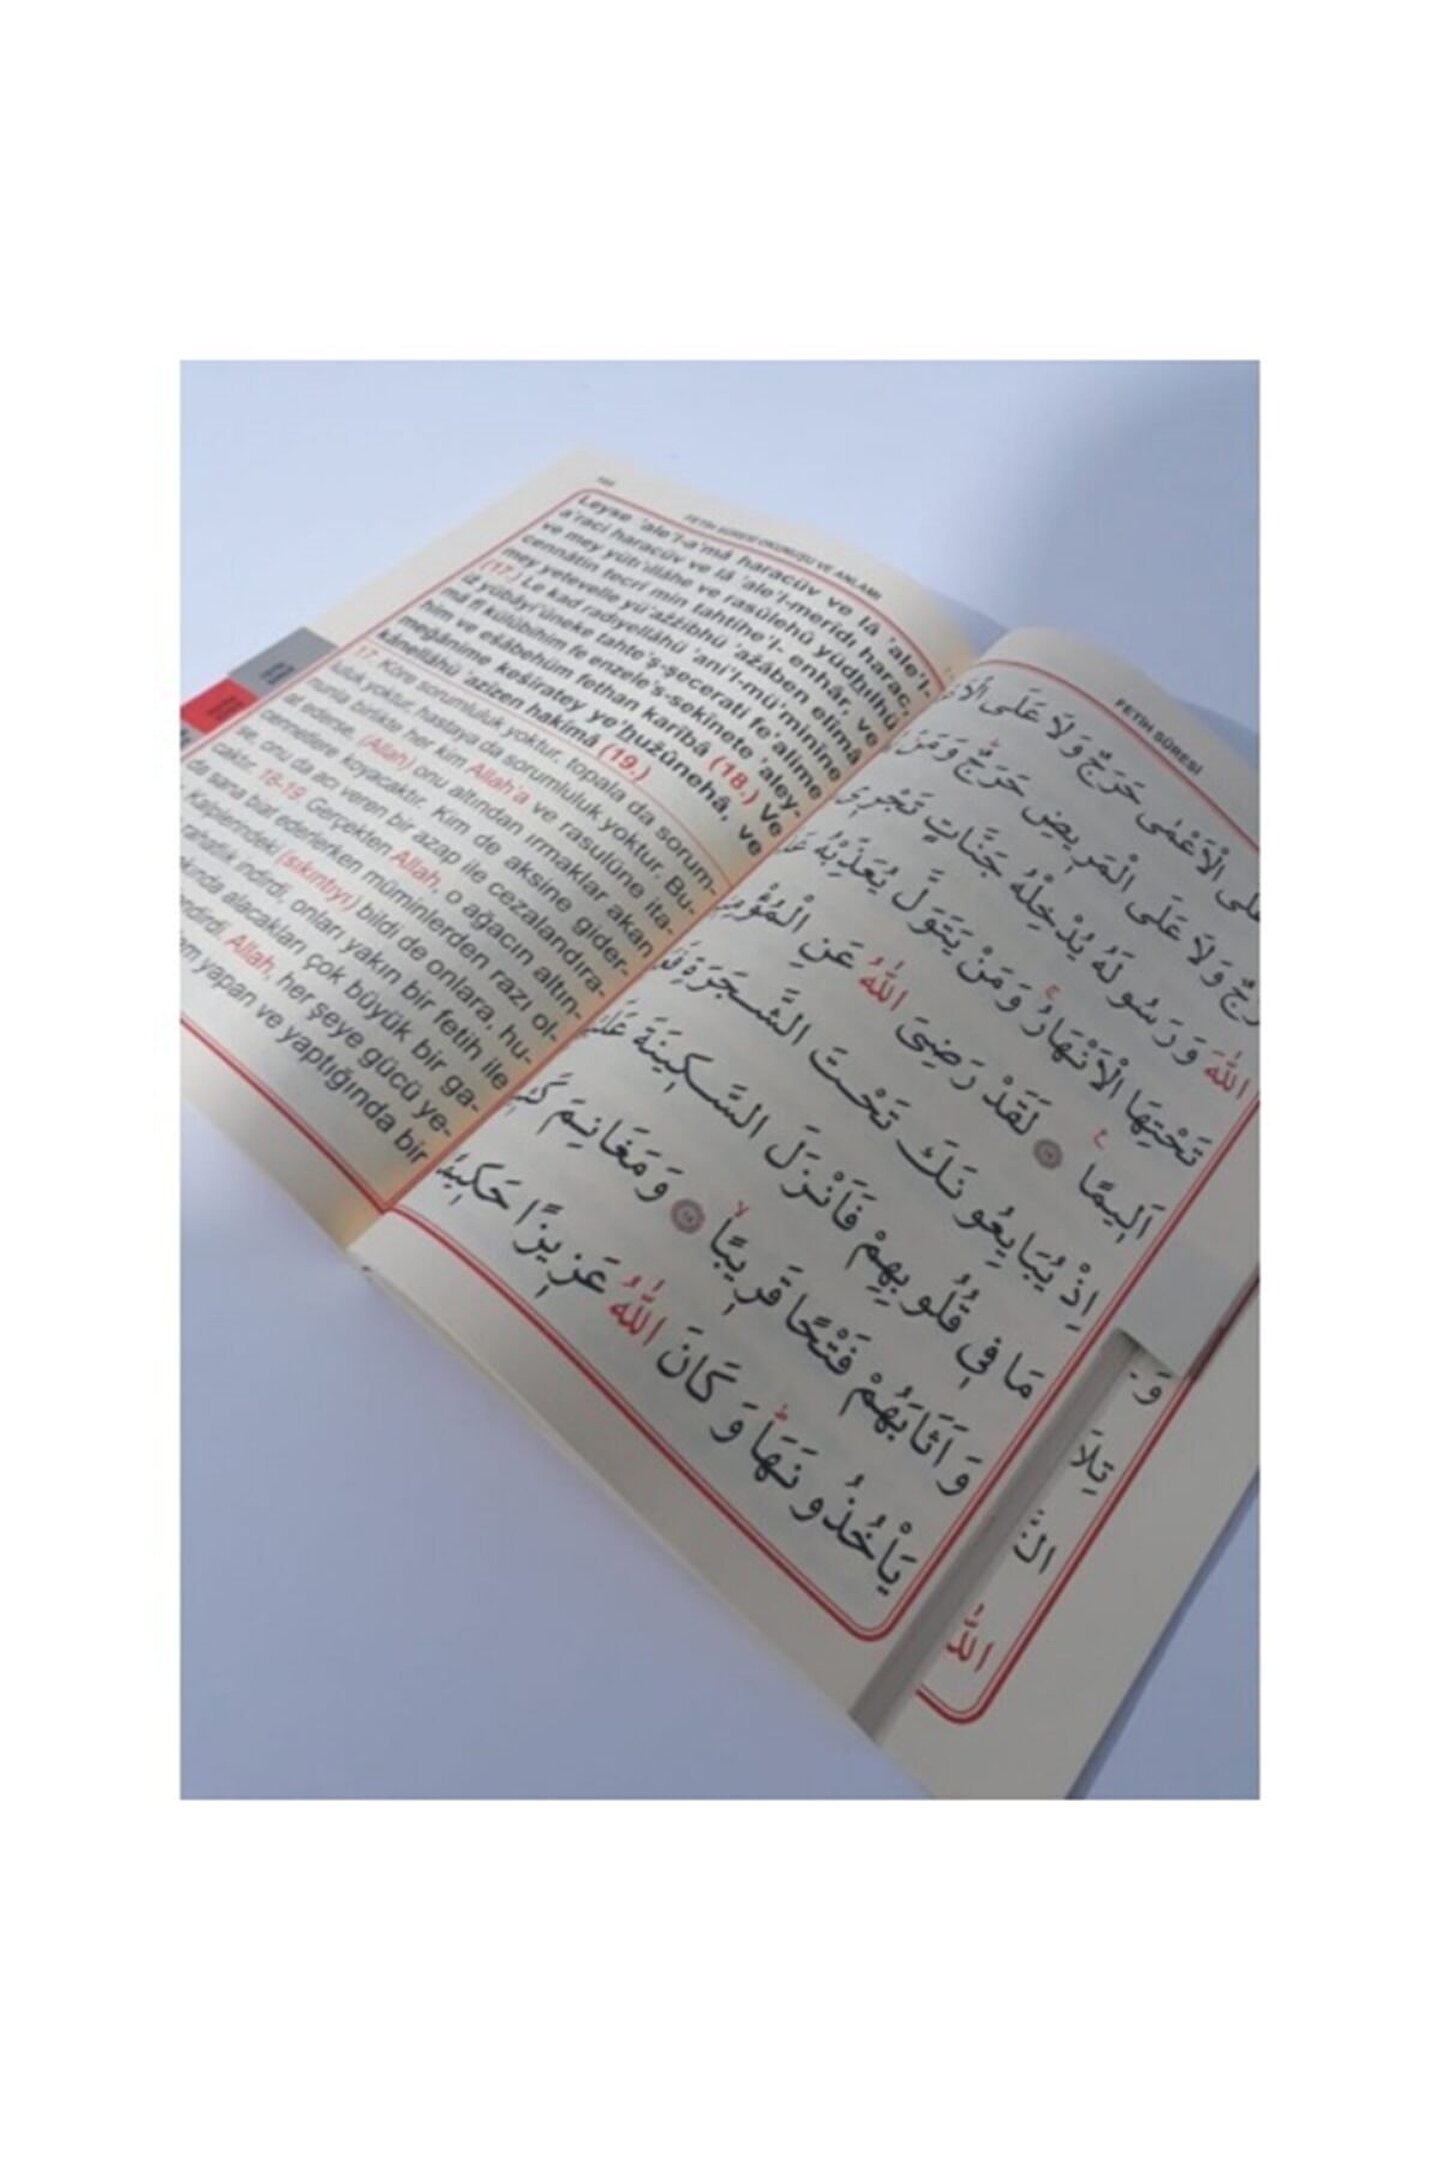 FETİH SÛRESİ OKUNUŞU VE ANLAMI
Leyse 'ale'l-a'mâ haracüv ve lâ 'ale'l-
a'raci haracüv ve lâ 'ale'l-merîdı harac,
ve mey yütı'ıllâhe ve rasûlehû yüdhılhü
cennâtin tecrî min tahtihe'l- enhâr, ve
mey yetevelle yü'ażżibhü 'ażâben elîmâ
(17.) Le kad radıyellâhü 'ani'l-mü'minîne
iż yübâyi'ûneke tahte'ş-şecerati fe'alime
mâ fî kulûbihim fe enzele's-sekînete 'aley-
him ve eŝâbehüm fethan karîbâ (18.) Ve
meğânime keŝîratey ye'huzûnehâ, ve
kânellâhü 'azîzen hakîmâ (19.)
17. Köre sorumluluk yoktur, topala da sorum-
luluk yoktur, hastaya da sorumluluk yoktur. Bu-
nunla birlikte her kim Allah'a ve rasulüne ita-
at ederse, (Allah) onu altından ırmaklar akan
cennetlere koyacaktır. Kim de aksine gider-
se, onu da acı veren bir azap ile cezalandıra-
caktır. 18-19. Gerçekten Allah, o ağacın altın-
da sana biat ederlerken müminlerden razı ol-
Kalplerindeki (sıkıntıyı) bildi de onlara, hu-
rahatlık indirdi, onları yakın bir fetih ile
alacakları çok büyük bir ga-
Allah, her şeye gücü ye-
yapan ve yaptığında bir
FETİH SÛRESİ
الْاَعْمٰى حَرَجٌ وَلَا عَلَى
وَلَا عَلَى الْمَرِيضِ حَرَجٌۜ وَمَنْ
اللّٰهَ وَرَسُولَهُ يُدْخِلْهُ جَنَّاتٍ تَجْرِي
تَحْتِهَا الْاَنْهَارُۚ وَمَنْ يَتَوَلَّ يُعَذِّبْهُ
اَلِيمًا ۟ لَقَدْ رَضِيَ اللّٰهُ عَنِ
اِذْ يُبَايِعُونَكَ تَحْتَ الشَّجَرَةِ
مَا فِي قُلُوبِهِمْ فَاَنْزَلَ السَّكِينَةَ
وَاَثَابَهُمْ فَتْحًا قَرِيبًاۙ وَمَغَانِمَ
يَأْخُذُونَهَاۜ وَكَانَ اللّٰهُ عَزِيزًا